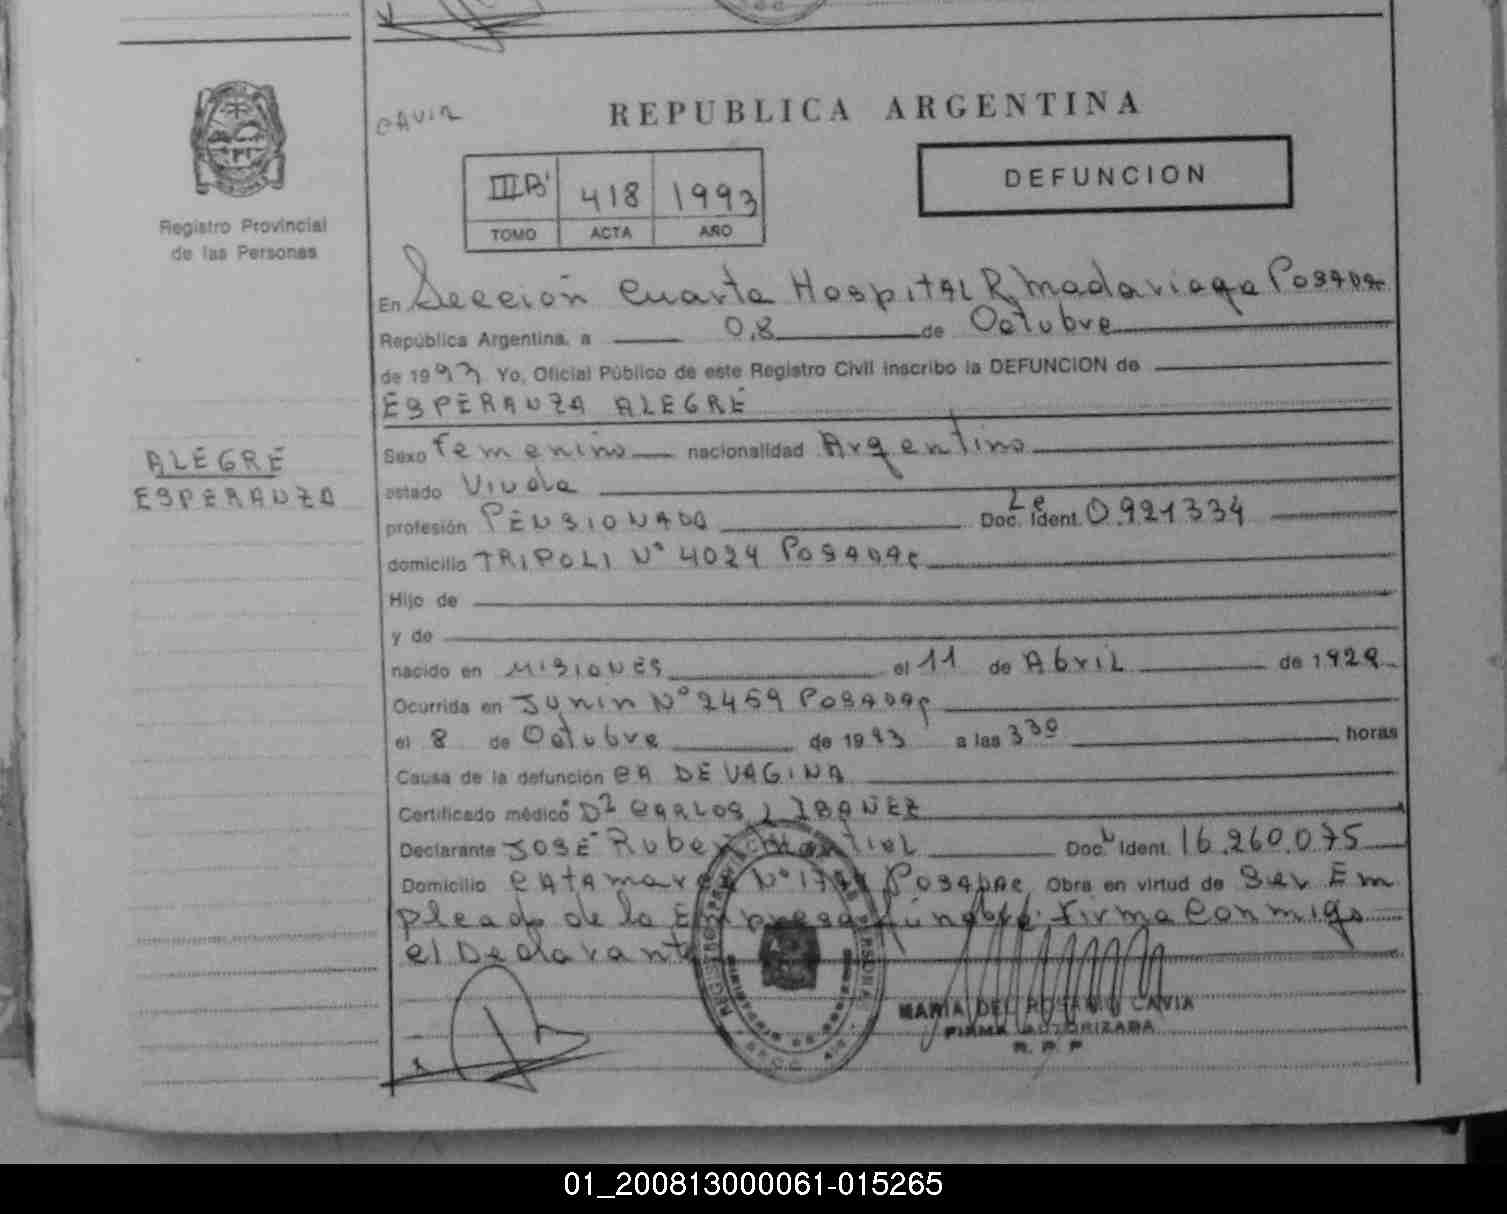 CAVIA
REPUBLICA ARGENTINA
Registro Provincial
de las Personas
III B' 418 1993
TOMO ACTA AÑO
DEFUNCION
En Sección Cuarta Hospital R. Madariaga Posadas
República Argentina, a 08 de Octubre
de 1993 Yo, Oficial Público de este Registro Civil inscribo la DEFUNCION de
ESPERANZA ALEGRE
ALEGRE
ESPERANZA
Sexo Femenino nacionalidad Argentina
estado Viuda
profesión PENSIONADA Doc. Ident. Lc 0.921334
domicilio TRIPOLI Nº 4024 POSADAS
Hijo de
y de
nacido en MISIONES el 11 de Abril de 1929
Ocurrida en Junin Nº 2459 POSADAS
el 8 de Octubre de 1993 a las 3 30 horas
Causa de la defunción CA DE VAGINA
Certificado médico Dr CARLOS IBAÑEZ
Declarante JOSÉ Ruben Montiel Doc. Ident. 16.260.075
Domicilio CATAMARCA Nº POSADAS Obra en virtud de Ser Em
pleado de la Empresa fúnebre. Firma Conmigo
el Declarante
MARIA DEL ROSARIO CAVIA
FIRMA AUTORIZADA
R. P. P
01_200813000061-015265